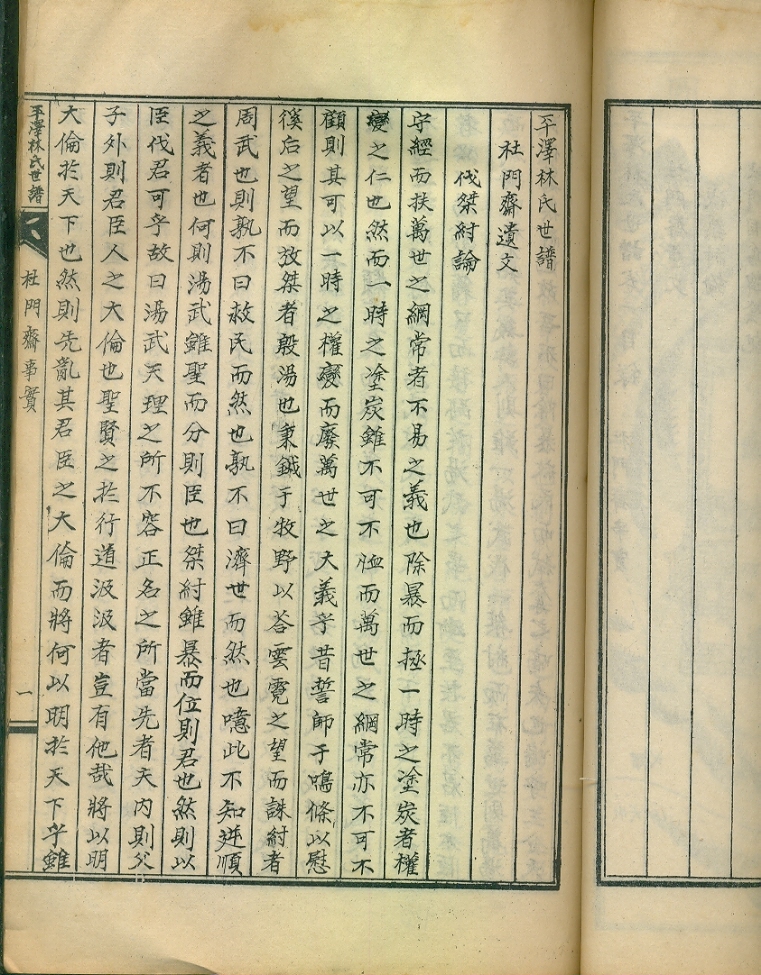 平澤林氏世譜
杜門齋遺文
伐桀紂論
守經而扶萬世之綱常者不易之義也除暴而拯一時之塗炭者權
變之仁也然而一時之塗炭雖不可不恤而萬世之綱常亦不可不
顧則其可以一時之權變而廢萬世之大義乎昔誓師于鳴條以慰
徯后之望而放桀者殷湯也秉鉞于牧野以答雲霓之望而誅紂者
周武也則孰不曰救民而然也孰不曰濟世而然也噫此不知逆順
之義者也何則湯武雖聖而分則臣也桀紂雖暴而位則君也然則以
臣伐君可乎故曰湯武天理之所不容正名之所當先者夫內則父
子外則君臣人之大倫也聖賢之於行道汲汲者豈有他哉將以明
大倫於天下也然則先亂其君臣之大倫而將何以明於天下乎雖
平澤林氏世譜
杜門齋事實
一